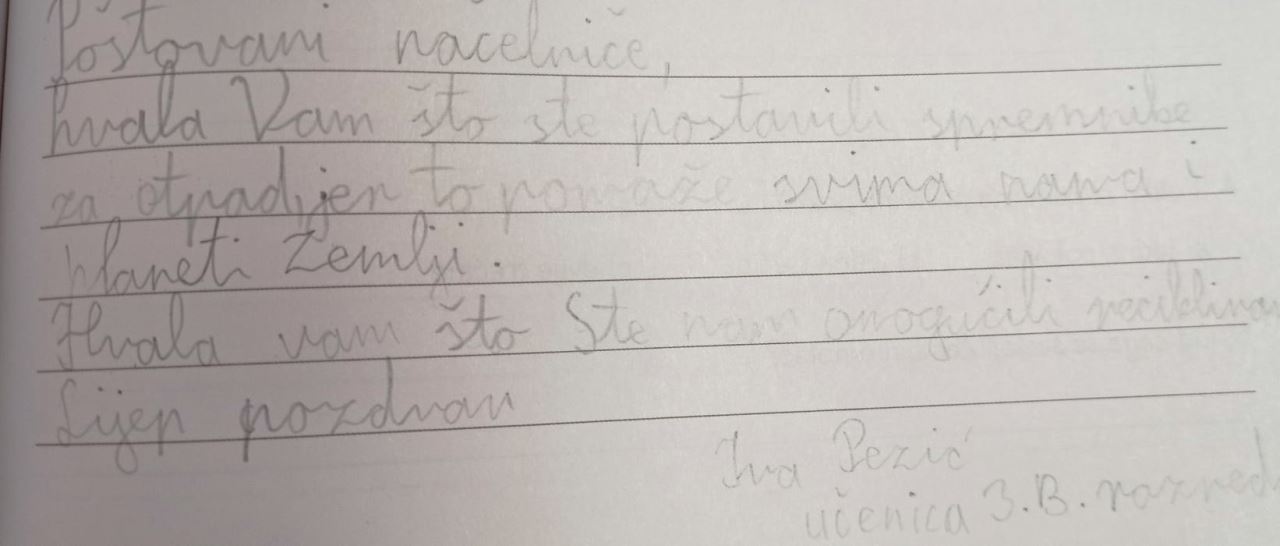 Poštovani načelniče,
hvala Vam što ste postavili spremnike
za otpad, jer to pomaže svima nama i
planeti Zemlji.
Hvala vam što Ste nam omogućili
Lijep pozdrav
Iva Pezić
učenica 3.B. razred